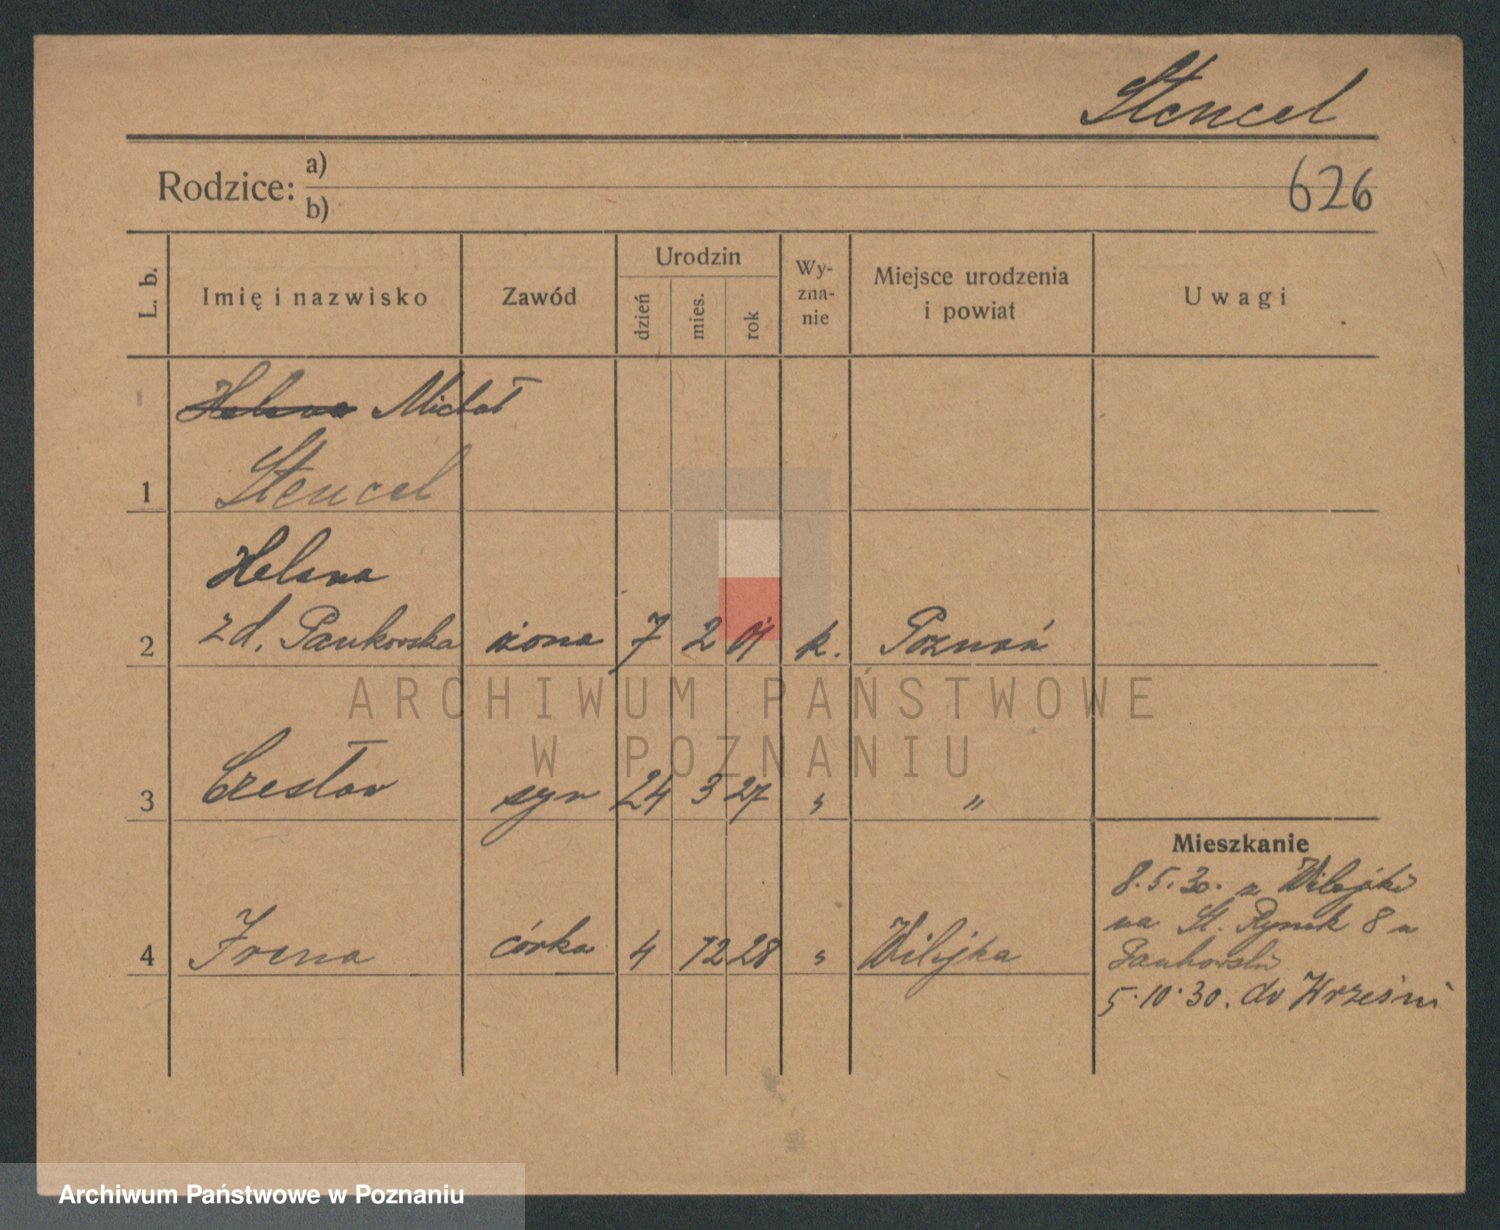 Stencel
Rodzice: a)
b)
626
L. b.
Imię i nazwisko
Zawód
Urodzin
dzień
mies.
rok
Wy-
zna-
nie
Miejsce urodzenia
i powiat
Uwagi
Helena Michał
1 Stencel
Helena
2 z d. Pankowska żona 7 2 01 k. Poznań
3 Czesław syn 24 3 27 " "
4 Irena córka 4 12 28 " Wilejka
Mieszkanie
8.5.30. z Wilejki
na St. Rynek 8 u
Pankowski
5.10.30. do Wrześni
ARCHIWUM PAŃSTWOWE
W POZNANIU
Archiwum Państwowe w Poznaniu